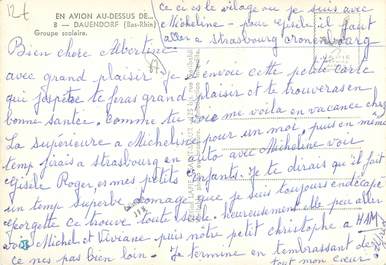 12t
EN AVION AU-DESSUS DE...
8 — DAUENDORF (Bas-Rhin)
Groupe scolaire.
ce ci est le vilage ou je suis avec
Micheline - pour quelle il faut
aller a strasbourg cronenbourg
Bien chere Albertine
avec grand plaisir je t envoie cette petite carte
qui j'espère te feras grand plaisir et te trouveras en
bonne santer. comme tu vois me voila en vacance chez
La supérieure a Micheline pour un mot. puis en même
temp j'irais a strasbourg en auto avec Micheline voir
Gisele Roger, et mes petits enfants. Je te dirais qu'il fait
un temp superbe domage que je suis toujours endicapé
Georgette ce trouve toute seule. heureusement elle peu aller
voir Michel et Viviane puis nôtre petit christophe a HAM
ce nes pas bien loin. Je termine en t'embrassant de
tout mon coeur.